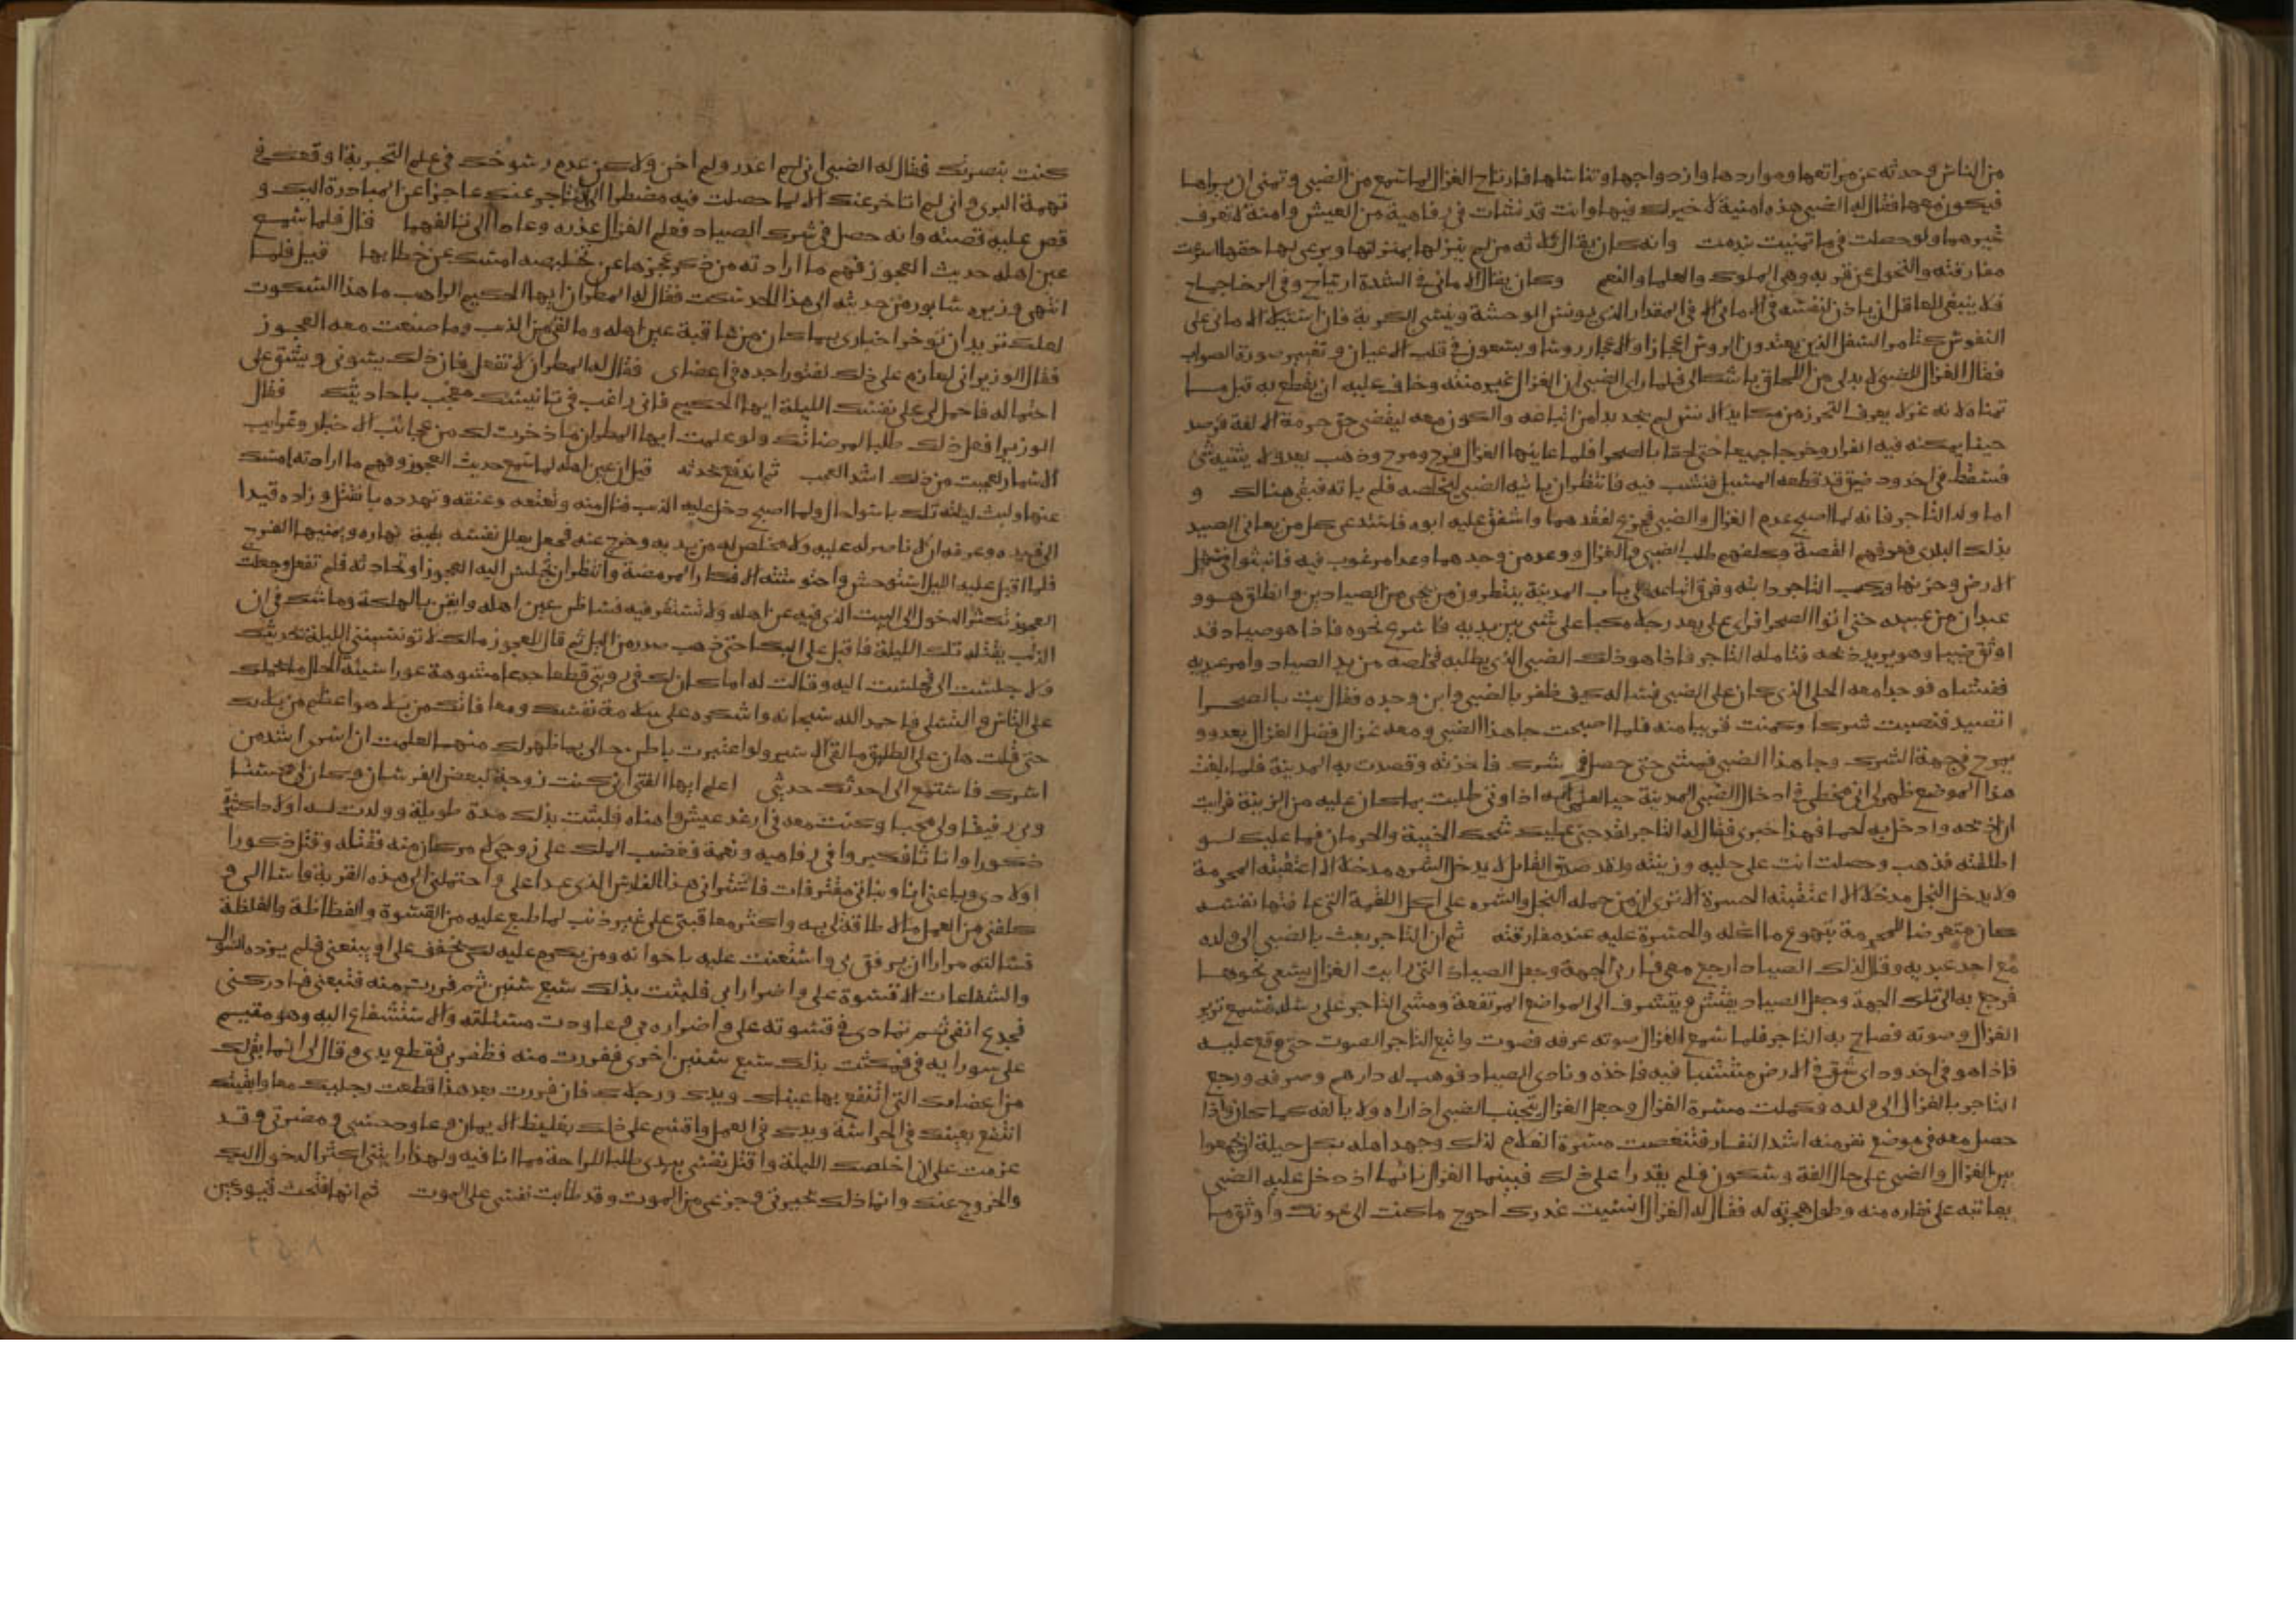 من الناس وحدثه عن مراتعها ومواردها وازدواجها وتناسلها فارتاح الغزال لما سمع من الضبي وتمنى ان يراها
فيكون معها فقال له الضبي هذه امنية لا خير لك فيها وانت قد نشات في رفاهية من العيش وامنة لا تعرف
غيرهما ولو حصلت في ما تمنيت ندمت وانه كان يقال ثلاثة من لم ينزلها بمنزلتها ويرعى لها حقها اسرعت
مفارقته والتحول عن قربه وهي الملوك والعلما والنعم وكان يقال الاماني في الشدة ارتياح وفي الرخا جماح
فلا ينبغي للعاقل ان ياذن لنفسه في الاماني الا في المقدار الذي يونس الوحشة وينسي الكربة فان استيلا الاماني على
النفوس كتامر السفل الذين يعتدون الروس اعجازا والاعجاز روسا ويسعون في قلب الاعيان وتغيير صورة الصواب
فقال الغزال للضبي لا بد لي من اللحاق باشكالي فلما راى الضبي ان الغزال غير منته وخاف عليه ان يقطع به قبل ما
تمنا ولانه غر لا يعرف التحرز من مكايد الانس لم يجد بدا من اتباعه والكون معه ليقضي حق حرمة الالفة فرصد
حينا يمكنه فيه الفرار وخرجا جميعا حتى لحقا بالصحرا فلما عاينها الغزال فرح ومرح وذهب يعدو لا يثنيه شي
فسقط في اخدود ضيق قد قطعه المسيل فنشب فيه فانتظر ان ياتيه الضبي ليخلصه فلم ياته فبقي هنالك و
اما ولد التاجر فانه لما اصبح عدم الغزال والضبي فجزع لفقدهما واشفق عليه ابوه فاستدعى كل من يعاني الصيد
بذلك البلد فعرفهم القصة وكلفهم طلب الضبي والغزال ووعد من وجدهما وعدا مرغوب فيه فانبثوا في سهل
الارض وحزنها وركب التاجر دابته وفرق اتباعه على باب المدينة ينتظرون من يجي من الصيادين وانطلق هو و
عبدان من عبيده حتى اتوا الصحرا فراى على بعد رجلا مكبا على شي بين يديه فاسرع نحوه فاذا هو صياد قد
اوثق ضبيا وهو يريد ذبحه فتامله التاجر فاذا هو ذلك الضبي الذي يطلبه فخلصه من يد الصياد وامر عبديه
ففتشاه فوجدا معه الحلي الذي كان على الضبي فساله كيف ظفر بالضبي واين وجده فقال بت بالصحرا
اتصيد فنصبت شركا وكمنت قريبا منه فلما اصبحت جا هذا الضبي ومعه غزال فضل الغزال يعدو و
يمرح في جهة الشرك وجا هذا الضبي فمشى حتى حصل في شرك فاخذته وقصدت به المدينة فلما بلغت
هذا الموضع ظهر لي اني مخطي في ادخال الضبي المدينة حيا لعلمي انه اذا رئي طلبت بما كان عليه من الزينة فرايت
ان اذبحه وادخل به لحما فهذا خبري فقال له التاجر لقد جنى عليك شحك الخيبة والحرمان فما عليك لو
اطلقته فذهب وحصلت انت على حليه وزينته ولقد صدق القايل لا يدخل الشره مدخلا الا اعقبته المحرمة
ولا يدخل البخل مدخلا الا اعتقبته الحسرة الا ترى ان من حمله البخل والشره على اكل اللقمة التي عافتها نفسه
كان متعرضا للمحرمة بتهوع ما اكله والحسرة عليه عند مفارقته ثم ان التاجر بعث بالضبي الى ولده
مع احد عبديه وقال لذلك الصياد ارجع معي فارني الجهة وجعل الصياد التي رايت الغزال يسعى نحوها
فرجع به الى تلك الجهة وجعل الصياد يفتش ويتشرف الى المواضع المرتفعة ومشى التاجر على رسله فسمع نزيز
الغزال وصوته فصاح به التاجر فلما سمع الغزال صوته عرفه فصوت واتبع التاجر الصوت حتى وقع عليه
فاذا هو في اخدود اي شق في الارض متنشبا فيه فاخذه ونادى الصياد فوهب له دارهم وصرفه ورجع
التاجر بالغزال الى ولده وكملت مسرة الغزال وجعل الغزال يتجنب الضبي اذا راه ولا يالفه كما كان واذا
حصل معه في موضع نفر منه اشد النفار فتنغصت مسرة الغلام لذلك وجهد اهله بكل حيلة ان يجمعوا
بين الغزال والضبي على حال الفة وسكون فلم يقدرا على ذلك فبينما الغزال نائما اذ دخل عليه الضبي
يعاتبه على نفاره منه وطول هجرته له فقال له الغزال انسيت غدرك احوج ما كنت الى عونك واوثق ما
كنت بنصرتك فقال له الضبي اني لم اغدر ولم اخن ولاكن عدم رسوخك في علم التجربة اوقعك في
تهمة البري واني لم اتاخر عنك الا لما حصلت فيه مضطرا الى التاخر عنك عاجزا عن المبادرة اليك و
قص عليه قصته وانه حصل في شرك الصياد فعلم الغزال عذره وعاد الى تالفهما قال فلما سمع
عين اهله حديث العجوز فهم ما ارادته من ذكر عجزها عن تخليصه امسك عن خطابها قيل فلما
انتهى وزير سابور من حديثه الى هذا الحد سكت فقال له المطران ايها الحكيم الراهب ما هذا السكوت
لعلك تريد ان توخر اخباري بما كان من عاقبة عين اهله وما لقي من الذيب وما صنعت معه العجوز
فقال الوزير اني لعازم على ذلك لفتور اجده في اعضاي فقال له المطران لا تفعل فان ذلك يسوني ويشق علي
احتماله فاحمل لي على نفسك الليلة ايها الحكيم فاني راغب في تانيسك معجب باحاديثك فقال
الوزير افعل ذلك طلبا لمرضاتك ولو علمت ايها المطران ما ذخرت لك من عجائب الاخبار وغرايب
الاسمار لعجبت من ذلك اشد العجب ثم اندفع يحدثه قيل ان عين اهله لما سمع حديث العجوز وفهم ما ارادته امسك
عنها ولبث ليلته تلك باسوا حال ولما اصبح دخل عليه الذيب فنال منه وتعتعه وعنفه وتهدده بالقتل وزاده قيدا
الى قيده وعرفه ان لا ناصر له عليه ولا مخلص له من يديه وخرج عنه فجعل يعلل نفسه بقية نهاره ويمنيها الفرج
فلما اقبل عليه الليل استوحش واحتوشته الافكار الممرضة وانتظر ان تجلس اليه العجوز او تحادثه فلم تفعل وجعلت
العجوز تكثر الدخول الى البيت الذي فيه عين اهله ولا تستقر فيه فساظن عين اهله وايقن بالهلكة وما شك في ان
الذيب يقتله تلك الليلة فاقبل على البكا حتى ذهب صدر من الليل ثم قال للعجوز مالك لا تونسينني الليلة بحديثك
ولا جلست الي فجلست اليه وقالت له اما كان لك في رويتي قطعا جدعا مشوهة عورا سيئة الحال ما يحملك
على التاسي والتسلي فاحمد الله سبحانه واشكره على سلامة نفسك ومعافاتك من بلا هو اعظم من بلائك
حتى قلت هان على الطليق ما لقي الاسير ولو اعتبرت باطن حالي بما ظهر لك منهما لعلمت ان اسري اشد من
اسرك فاستمع الي احدثك حديثي اعلم ايها الفتى اني كنت زوجة لبعض الفرسان وكان لي محسنا
وبي رفيقا ولي محبا وكنت معه في ارغد عيش واهناه فلبثت بذلك مدة طويلة وولدت له اولادا كثيرة
ذكورا واناثا فكبروا في رفاهية ونعمة فغضب الملك على زوجي لامر كان منه فقتله وقتل ذكورا
اولادي وباعني انا وبناتي مفترقات فاشتراني هذا الفارس الذي عدا علي واحتملني الى هذه القرية فاسا الي و
كلفني من العمل ما لا طاقة لي به واكثر معاقبتي على غير ذنب لما طبع عليه من القسوة والفظاظة والغلظة
فسالته مرارا ان يرفق بي واستعنت عليه باخوانه ومن يكرم عليه لكي يخفف علي او يبيعني فلم يزده السوال
والشفاعات الا قسوة علي واضرارا بي فلبثت بذلك سبع سنين ثم فررت منه فتبعني فادركني
فجدع انفي ثم تمادى في قسوته علي واضراره بي وعاودت مسئلته والاستشفاع اليه وهو مقيم
على سو رايه في فمكثت بذلك سبع سنين اخرى ففررت منه فظفر بي فقطع يدي وقال لي انما بقي لك
من اعضائك التي انتفع بها عيناك ويدك ورجلاك فان فررت بعد هذا قطعت رجليك معا وابقيتك
انتفع بعينك في الحراسة ويدك في العمل واقسم على ذلك بغليظ الايمان وعاود محنتي ومضرتي وقد
عزمت على ان اخلصك الليلة واقتل نفسي بيدي طلبا للراحة مما انا فيه ولهذا رايتني اكثر الدخول اليك
والخروج عنك وانما ذلك لحيرتي وجزعي من الموت وقد طابت نفسي على الموت ثم انها فتحت قيود عين